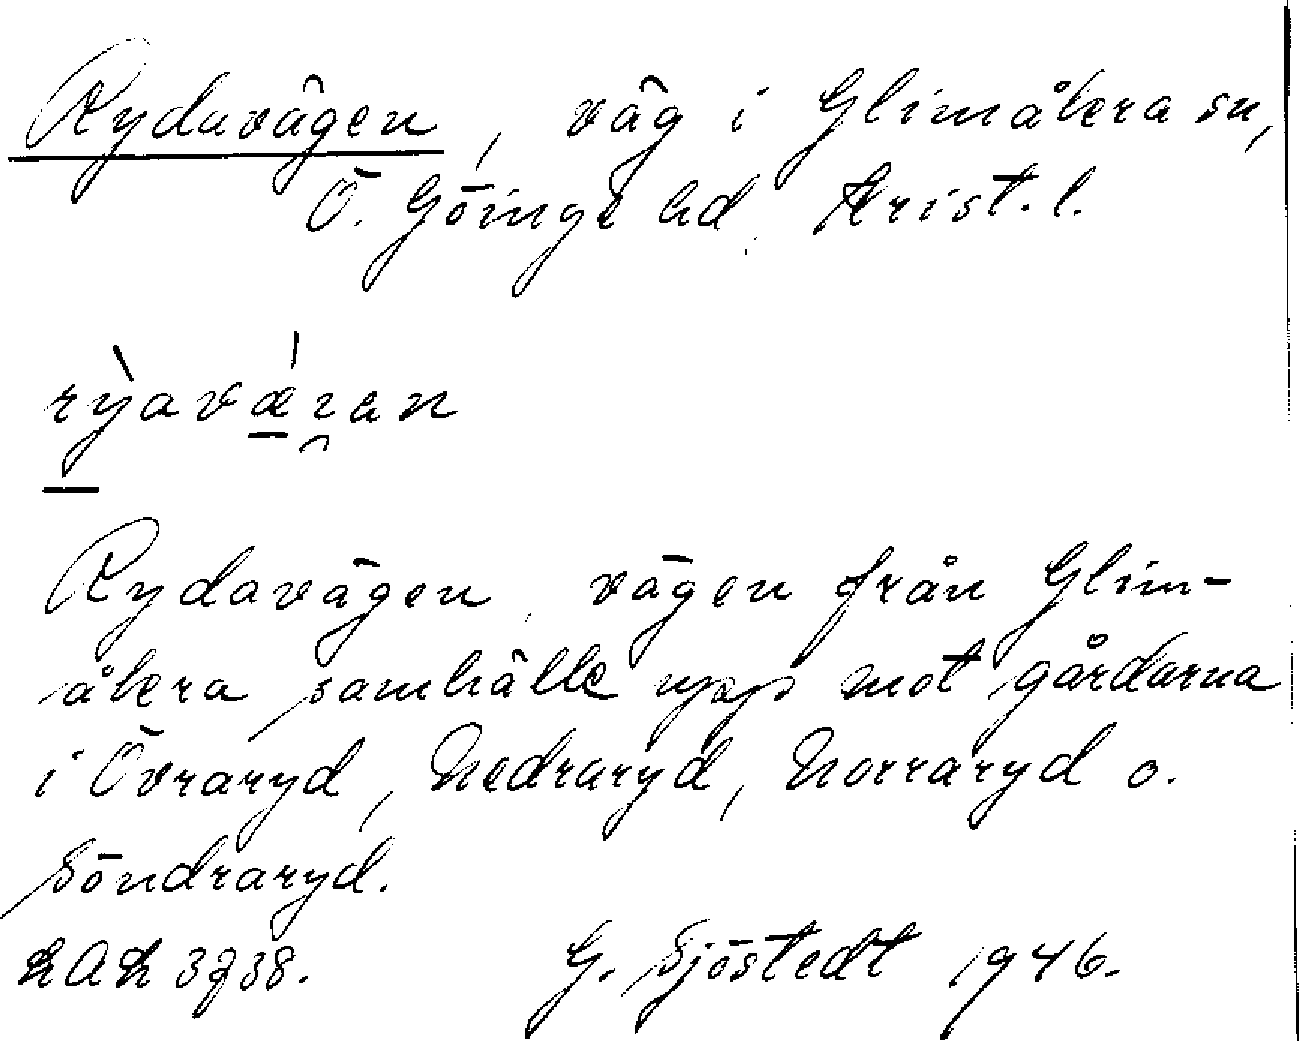 Rydavägen, väg i Glimåkra sn,
Ö. Göinge hd, Krist. l.
rỳavǽran
Rydavägen, vägen från Glim-
åkra samhälle upp mot gårdarna
i Övraryd, Nedraryd, Norraryd o.
Söndraryd.
LAL 3738. G. Sjöstedt 1946.